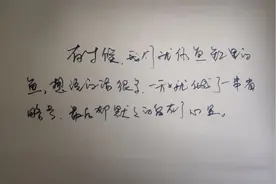 有时候，我们就像鱼缸里的
鱼，想说的话很多，一开口就化成了一串省
略号，最后都默默的留在了心里。